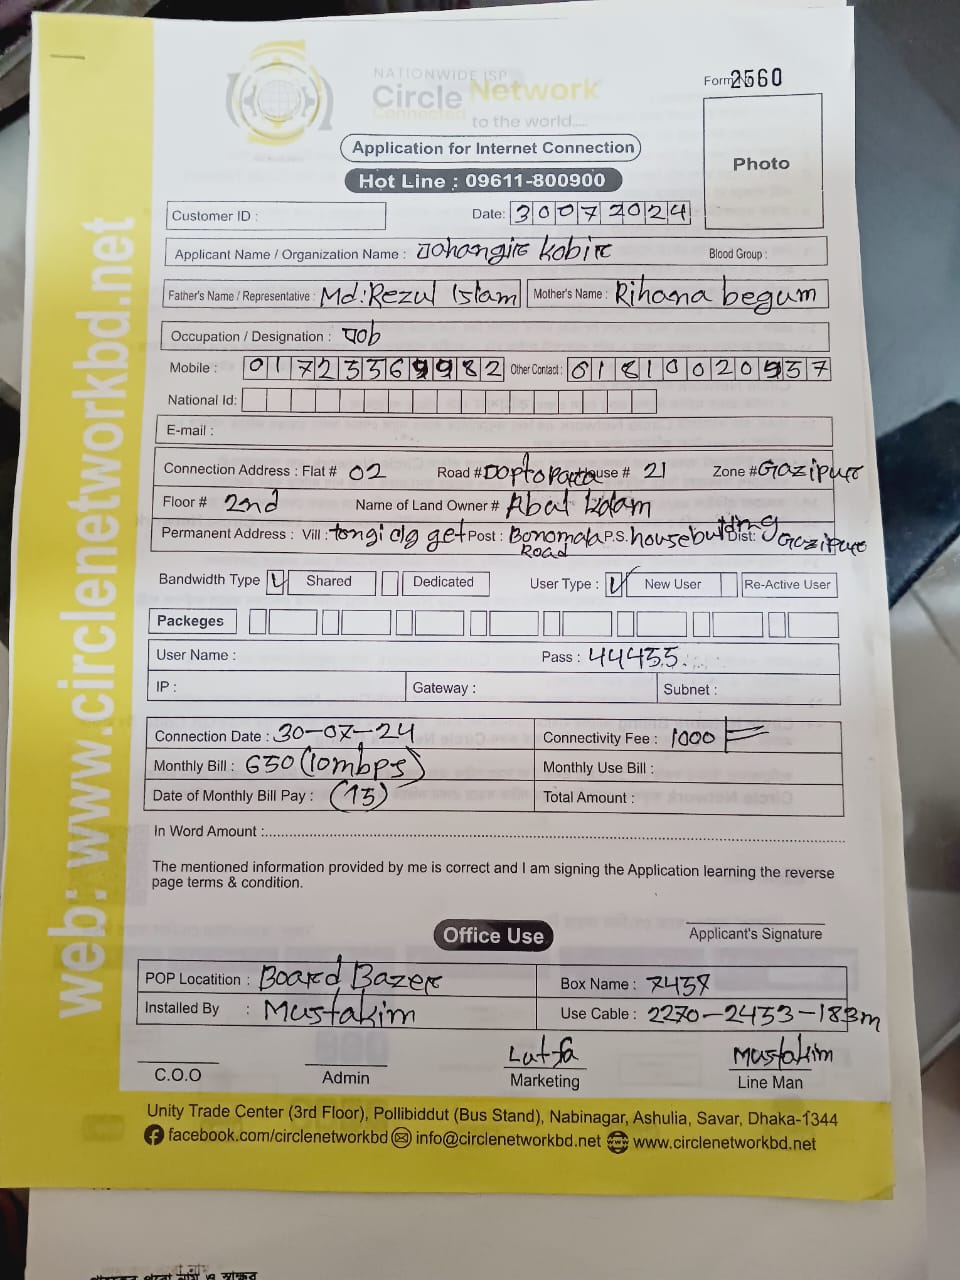 NATIONWIDE ISP
Circle Network
Connected
to the world....
Form No 2560
Photo
Application for Internet Connection
Hot Line : 09611-800900
Customer ID :
Date: 30072024
Applicant Name / Organization Name : Johangir kobir
Blood Group :
Father's Name / Representative : Md. Rezul Islam
Mother's Name : Rihana begum
Occupation / Designation : Job
Mobile : 01723369982
Other Contact : 01810020937
National Id:
E-mail :
Connection Address : Flat # 02 Road # House # 21 Zone # Gazipur
Floor # 2nd Name of Land Owner # Abul
Permanent Address : Vill : tongi clg get Post : Bonomala Road P.S. housebuilding Dist: Gazipur
Bandwidth Type Shared Dedicated User Type : New User Re-Active User
Packeges
User Name : Pass : 44455
IP : Gateway : Subnet :
Connection Date : 30-07-24 Connectivity Fee : 1000
Monthly Bill : 650 (10mbps) Monthly Use Bill :
Date of Monthly Bill Pay : (15) Total Amount :
In Word Amount :
The mentioned information provided by me is correct and I am signing the Application learning the reverse
page terms & condition.
Applicant's Signature
Office Use
POP Locatition : Board Bazer Box Name : 7457
Installed By : Mustakim Use Cable : 2270-2453-183m
Lutfa Mustakim
C.O.O Admin Marketing Line Man
Unity Trade Center (3rd Floor), Pollibiddut (Bus Stand), Nabinagar, Ashulia, Savar, Dhaka-1344
facebook.com/circlenetworkbd info@circlenetworkbd.net www.circlenetworkbd.net
web: www.circlenetworkbd.net